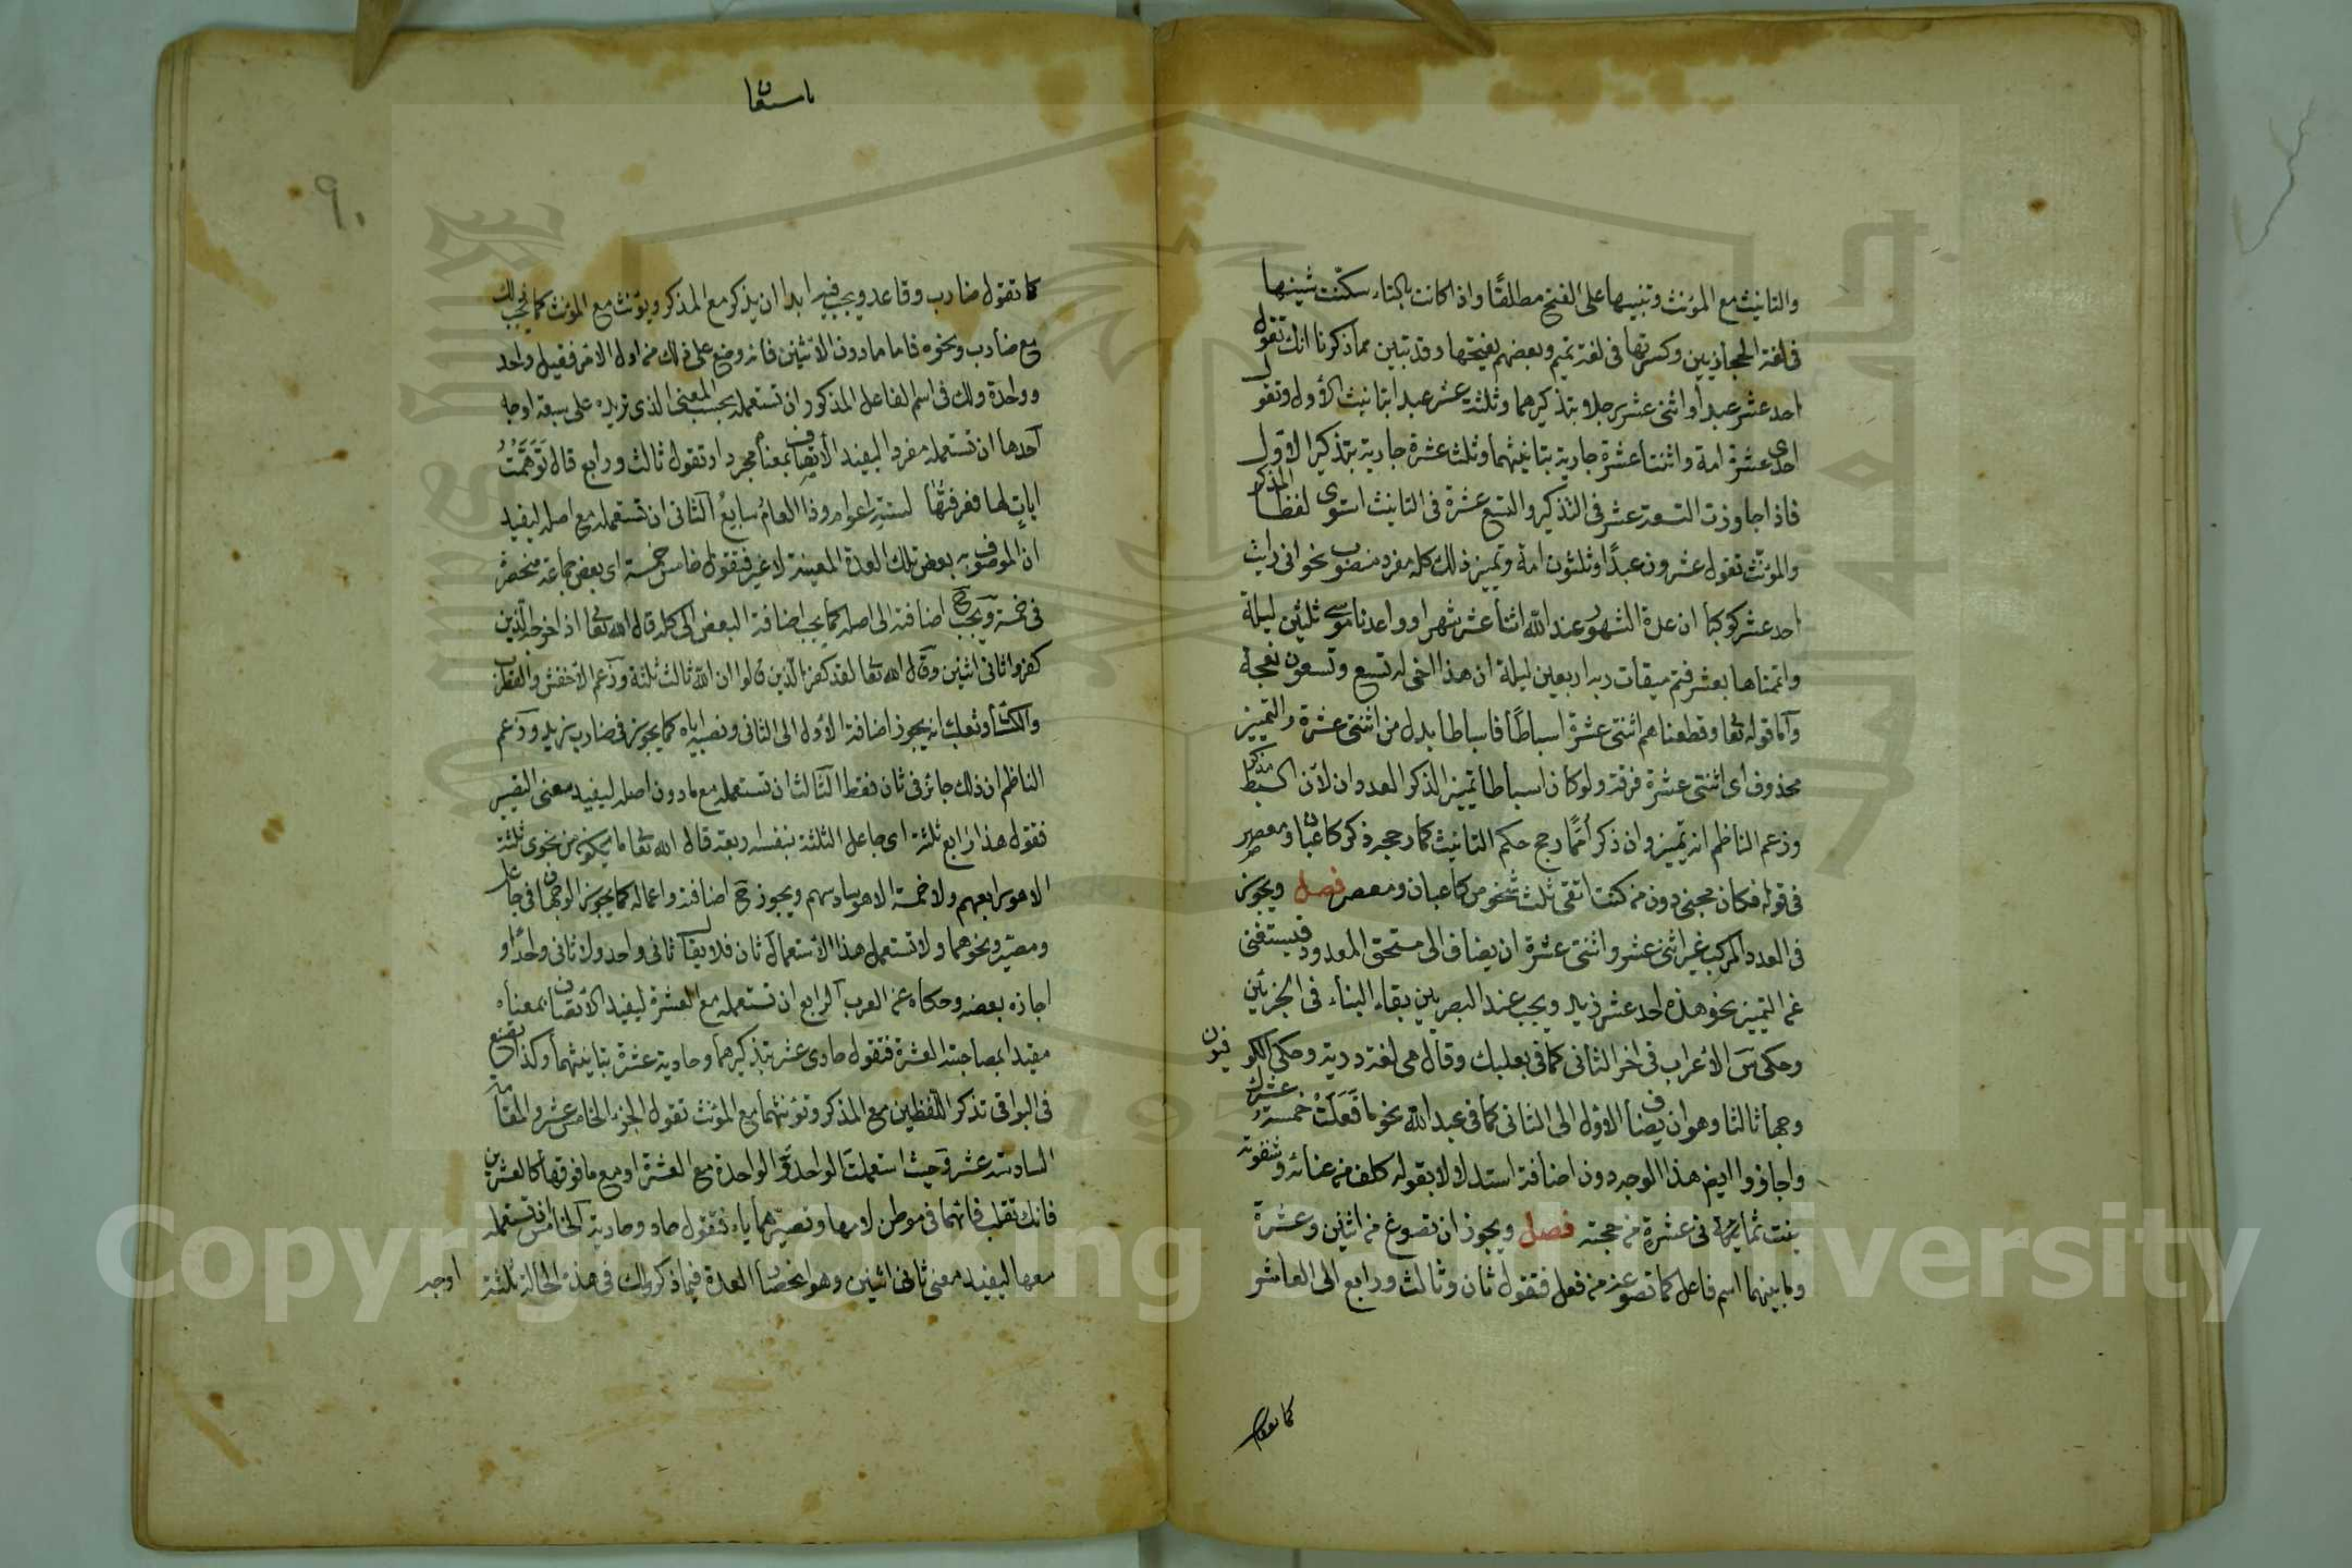 والتانيث مع المؤنث وتبنيها على الفتح مطلقًا واذا كانت بالتاء سكنت شينها
فى لغة الحجازيين وكسرتها فى لغة تميم وبعضهم يفتحها وقد تبين مما ذكرنا انك تقول
احد عشر عبدا واثنى عشر رجلا بتذكيرهما وثلثة عشر عبدا بتانيث الاول وتقول
احدى عشرة امة واثنتا عشرة جارية بتانيثهما وثلث عشرة جارية بتذكير الاول
فاذا جاوزت التسعة عشر فى التذكير والتسع عشرة فى التانيث استوى لفظ المذكر
والمؤنث تقول عشرون عبدًا وثلثون امة وتمييز ذلك كله مفرد منصوب نحو انى رايت
احد عشر كوكبا ان عدة الشهور عند الله اثنا عشر شهرا وواعدنا موسى ثلثين ليلة
واتممناها بعشر فتم ميقات ربه اربعين ليلة ان هذا اخى له تسع وتسعون نعجة
واما قوله تعا وقطعناهم اثنتى عشرة اسباطًا فاسباطا بدل من اثنتى عشرة والتمييز
محذوف اى اثنتى عشرة فرقة ولو كان اسباطا تمييز الذكر العددان لان السبط مذكر
وزعم الناظم انه تمييز وان ذكر أممًا رجح حكم التانيث كما رجحه ذكر كاعبان ومعصر
فى قوله فكان مجنى دون من كنت اتقى ثلث شخوص كاعبان ومعصر فصل ويجوز
فى العدد المركب غير اثنى عشر واثنتى عشرة ان يضاف الى مستحق المعدود فيستغنى
عن التمييز نحو هذه احد عشر زيد ويجب عند البصريين بقاء البناء فى الجزئين
وحكى س الاعراب فى اخر الثانى كما فى بعلبك وقال هى لغة ردية وحكى الكوفيون
وجها ثالثا وهو ان يضاف الاول الى الثانى كما فى عبد الله نحو ما فَعَلَتْ خمسة عشرك
واجازوا ايضا هذا الوجه دون اضافة استدلالا بقوله كلف من عنائه وشقوته
بنت ثمانى عشرة من حجته فصل ويجوز ان تصوغ من اثنين وعشرة
وما بينهما اسم فاعل كما تصوغه من فعل فتقول ثان وثالث ورابع الى العاشر
كما تقول
٩٠
كما تقول ضارب وقاعد ويجب فيه ابدا ان يذكر مع المذكر ويؤنث مع المؤنث كما يجب ذلك
مع ضارب ونحوه فاما ما دون الاثنين فانه وضع على ذلك من اول الامر فقيل واحد
وواحدة ولك فى اسم الفاعل المذكور ان تستعمله بحسب المعنى الذى تريده على سبعة اوجه
احدها ان تستعمله مفردا ليفيد الاتصاف بمعناه مجردا فتقول ثالث ورابع قال تَوَهَّمْتُ
اياتٍ لها فعرفتُها لستة اعوام وذا العامُ سابعُ الثانى ان تستعمله مع اصله ليفيد
ان الموصوف به بعض تلك العدة المعينة لا غير فتقول خامس خمسة اى بعض جماعة منحصرة
فى خمسة ويجب ح اضافته الى اصله كما يجب اضافة البعض الى كله قال الله تعا اذ اخرجه الذين
كفروا ثانى اثنين وقال الله تعا لقد كفر الذين قالوا ان الله ثالث ثلثة وزعم الاخفش والقطرب
والكسائى وثعلب انه يجوز اضافة الاول الى الثانى ونصبه اياه كما يجوز فى ضارب زيد وزعم
الناظم ان ذلك جائز فى ثان فقط الثالث ان تستعمله مع مادون اصله ليفيد معنى التصيير
فتقول هذا رابع ثلثة اى جاعل الثلثة بنفسه اربعة قال الله تعا ما يكون من نجوى ثلثة
الا هو رابعهم ولا خمسة الا هو سادسهم ويجوز ح اضافته واعماله كما يجوز الوجهان فى جاعل
ومصيّر ونحوهما ولا تستعمل هذا الاستعمال ثان فلا يقال ثانى واحد ولا ثانى واحدًا و
اجازه بعضه وحكاه عن العرب الرابع ان تستعمله مع العشرة ليفيد الاتصاف بمعناه
مقيدا بمصاحبته العشرة فتقول حادى عشر بتذكيرهما وحادية عشرة بتانيثهما وكذا تصنع
فى البواقى تذكر اللفظين مع المذكر وتؤنثهما مع المؤنث تقول الجزء الخامس عشر والمقامة
السادسة عشر وحيث استعملت الواحد او الواحدة مع العشرة او مع ما فوقها كالعشرين
فانك تقلب فائهما فى موطن لامهما وتصيرهما ياء فتقول حاد وحادية الخامس ان تستعمله
معها ليفيد معنى ثانى اثنين وهو انحصار العدة فيما ذكر ولك فى هذه الحالة ثلثة
اوجه
Copyright © King Saud University